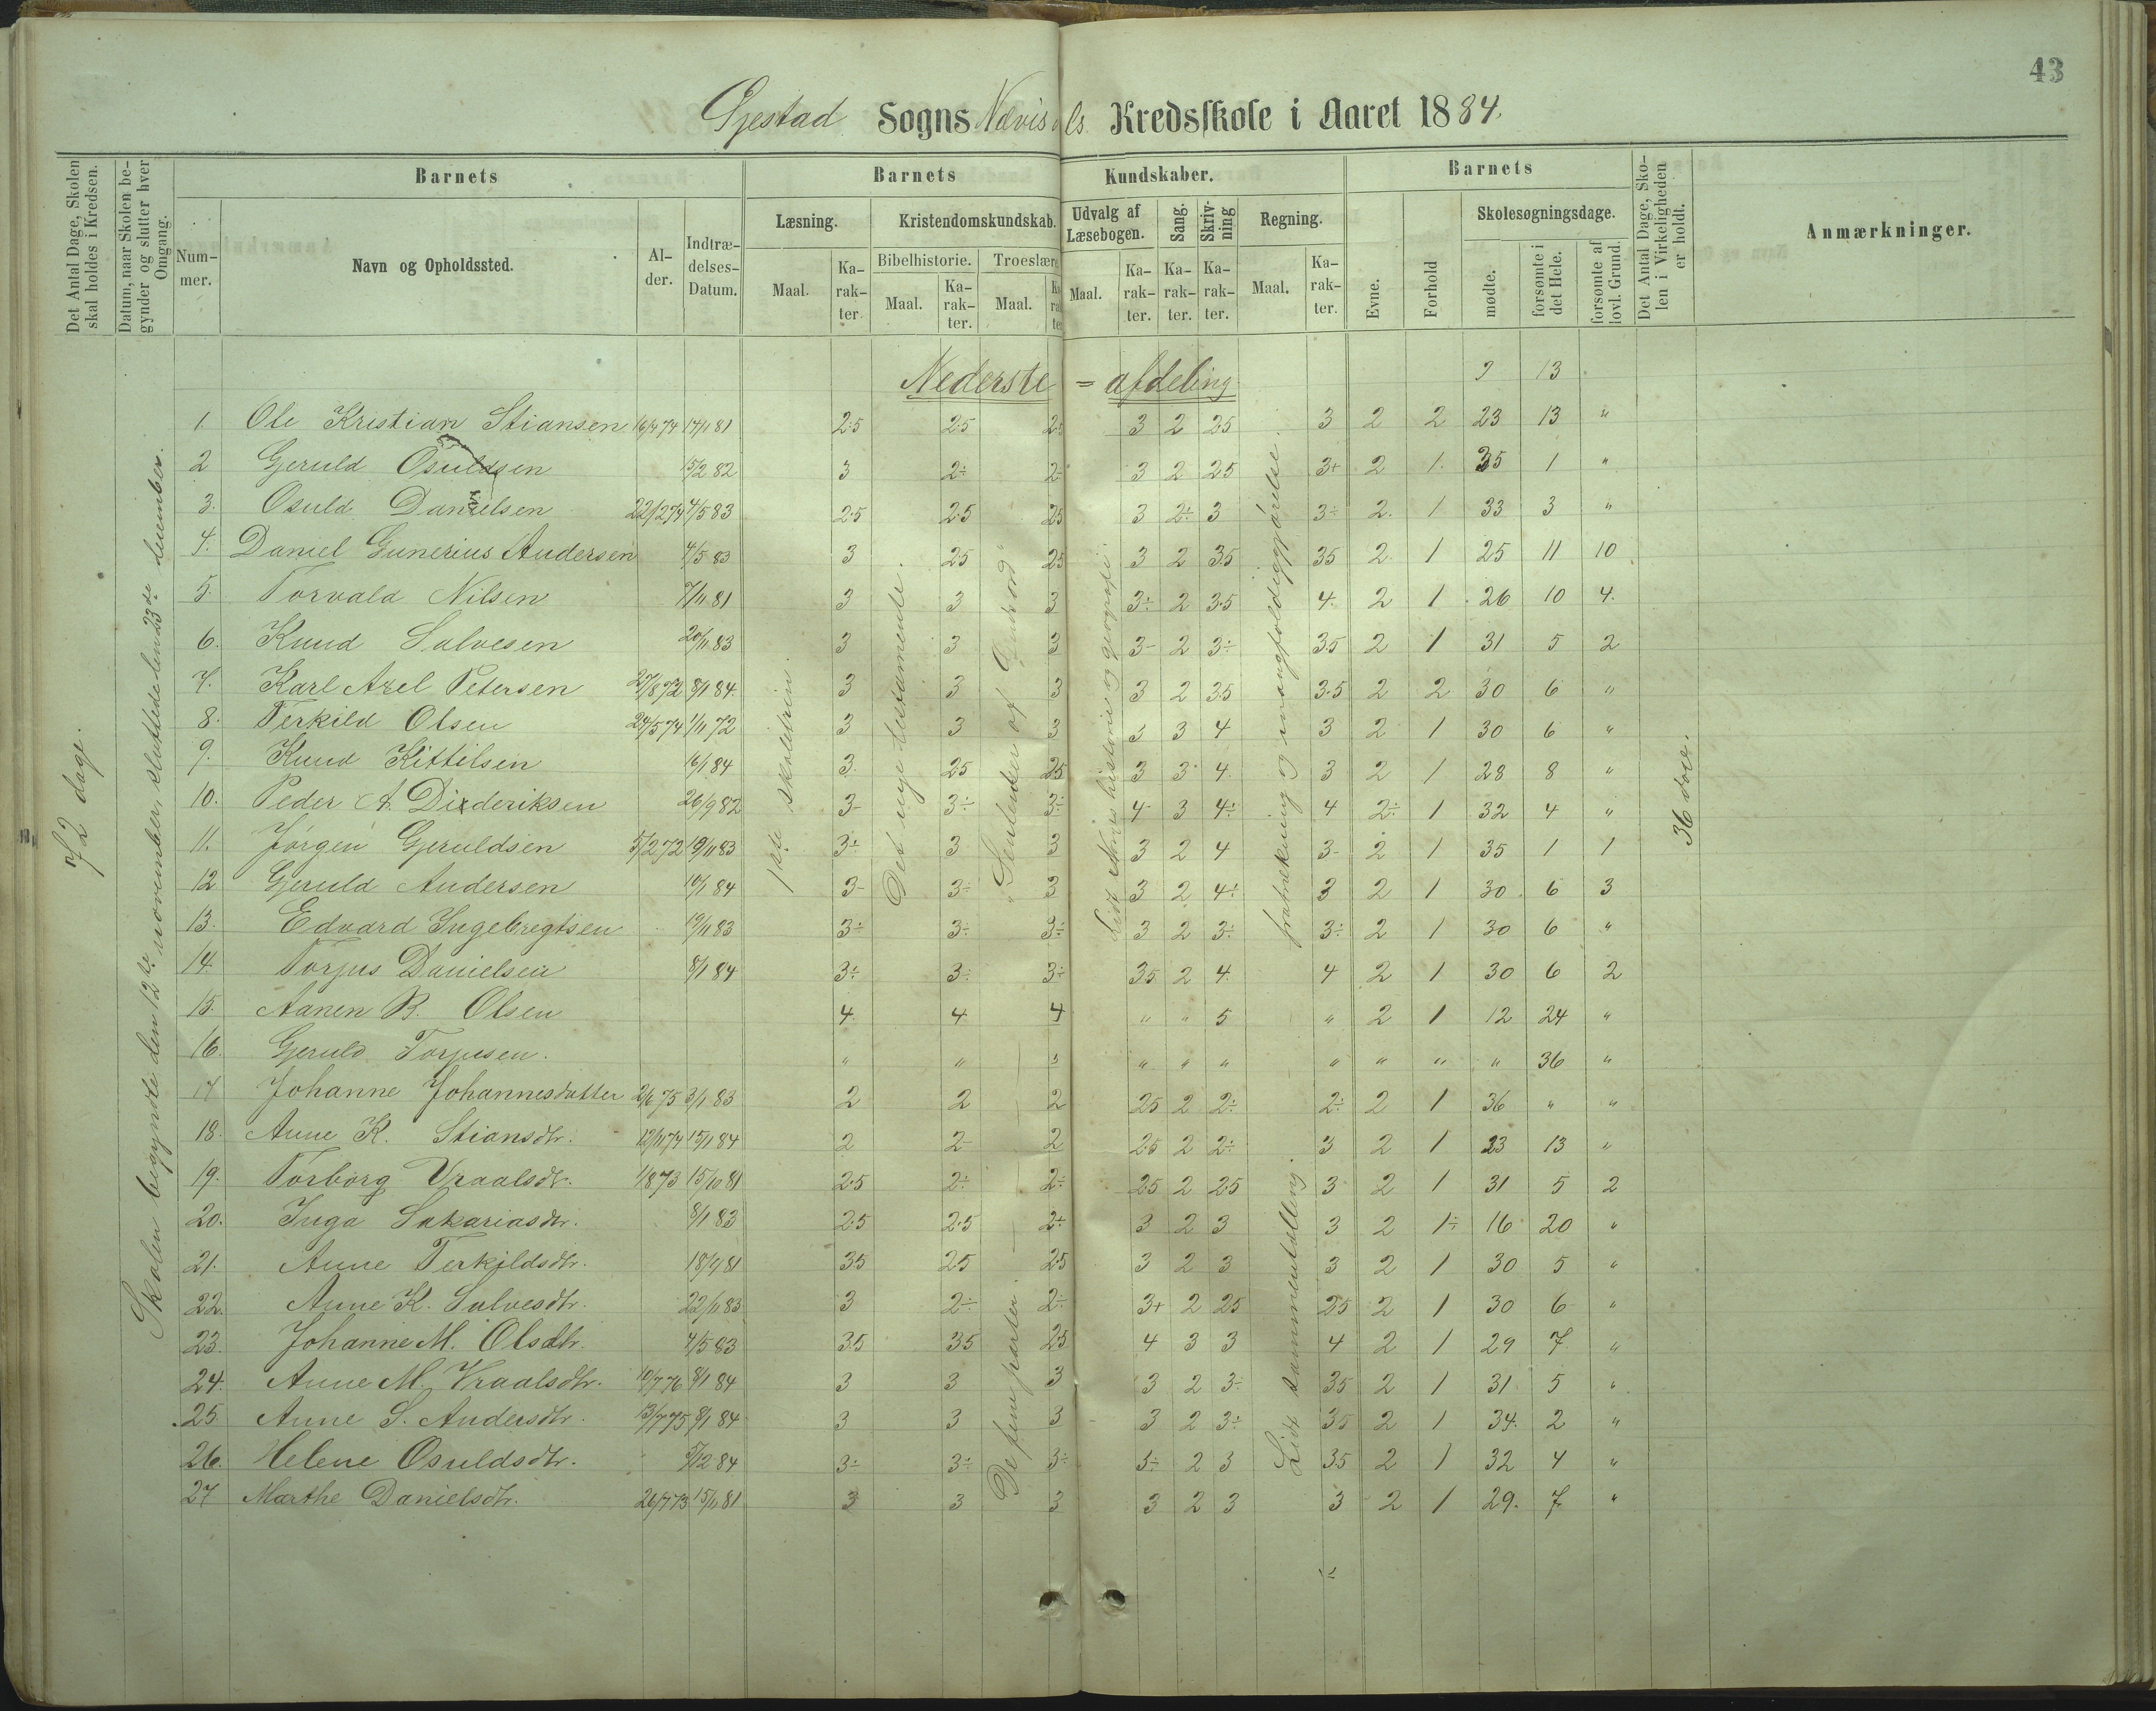 43
Gjestad Sogns Nævisdals Kredsskole i Aaret 1884.
Det Antal Dage, Skolen skal holdes i Kredsen.
Datum, naar Skolen begynder og slutter hver Omgang.
Barnets
Nummer.
Navn og Opholdssted.
Alder.
Indtrædelses-Datum.
Barnets Kundskaber.
Læsning.
Maal.
Karakter.
Kristendomskundskab.
Bibelhistorie.
Maal.
Karakter.
Troeslære
Maal.
Udvalg af Læsebogen.
Maal.
Karakter.
Sang.
Karakter.
Skrivning
Karakter.
Regning.
Maal.
Karakter.
Barnets
Evne.
Forhold
Skolesøgningsdage.
mødte.
forsømte i det Hele.
forsømte af lovl. Grund.
Det Antal Dage, Skolen i Virkeligheden er holdt.
Anmærkninger.
72 dage.
Skolen begyndte den 12te november, sluttede den 23de december.
1ste skoletrin.
Det nye testamente.
De fem parter
Lidt Norges historie og geografi.
fratrækning og mangfoldiggjørelse.
Lidt sammentælling.
36 dage.
Nederste = afdeling
13
1. Ole Kristian Stiansen 16/4 74 14/11 81 2.5 2.5 2.5 3 2 2.5 3 2 2 23 13 "
2 Gjeruld Osuldsen 15/2 82 3 2÷ 2÷ 3 2 2.5 3+ 2 1. 35 1 "
3. Osuld Danielsen 22/12 74 4/5 83 2.5 2.5 2.5 3 2÷ 3 3÷ 2. 1 33 3 "
4. Daniel Gunerius Andersen 4/5 83 3 2.5 2.5 3 2 3.5 3.5 2 1 25 11 10
5. Torvald Nilsen 7/11 81 3 3 3 3÷ 2 3.5 4. 2 1 26 10 4.
6. Knud Salvesen 20/11 83 3 3 3 3- 2 3÷ 3.5 2 1 31 5 2
7. Karl Axel Petersen 27/8 72 8/1 84. 3 3 3 3 2 3.5 3.5 2 2 30 6 "
8. Terkild Olsen 24/5 74 1/11 72 3 3 3 3 3 4 3 2 1 30 6 "
9. Knud Kittilsen 16/1 84 3. 2.5 2.5 3 3 4. 3 2 1 28 8 "
10. Peder A. Diederiksen 26/9 82 3- 3÷ 3÷ 4- 3 4÷ 4 2÷ 1 32 4 "
11. Jørgen Gjeruldsen 5/2 72 19/11 83 3÷ 3 3 3 2 4 3- 2 1 35 1 1
12 Gjeruld Andersen 10/1 84 3- 3÷ 3 3 2 4÷ 3 2 1 30 6 3
13. Edvard Ingebregtsen 19/11 83 3÷ 3÷ 3÷ 3 2 3÷ 3÷ 2 1 30 6 "
14. Torjus Danielsen 8/1 84 3÷ 3÷ 3÷ 3.5 2 4. 4 2 1 30 6 2
15. Aanen B. Olsen 4 4 4 " " 5 " 2 1 12 24 "
16. Gjeruld Torjusen. " " " " " " " " " " 36 "
17 Johanne Johannesdatter 2/6 75 3/1 83 2 2 2 2.5 2 2÷ 2÷ 2 1 36 " "
18. Anne K. Stiansdtr. 12/11 74 15/1 84 2 2- 2 2.5 2 2÷ 3 2 1 23 13 "
19. Torborg Vraalsdtr. 1/8 73 15/10 81 2.5 2÷ 2÷ 2.5 2 2.5 3 2 1 31 5 2
20. Inga Sakariasdtr. 8/1 83 2.5 2.5 2÷ 3 2 3 3 2 1÷ 16 20 "
21. Anne Terkildsdtr. 18/9 81 3.5 2.5 2.5 3 2 3 3 2 1 30 5 "
22. Anne K. Salvesdtr. 22/11 83 3 2÷ 2÷ 3+ 2 2.5 2.5 2 1 30 6 "
23. Johanne M. Olsdtr. 4/5 83 3.5 3.5 2.5 4 3 3 4 2 1 29 7. "
24. Anne M. Vraalsdtr. 10/7 76 8/1 84 3 3 3 3 2 3÷ 3.5 2 1 31 5 "
25. Anne S. Andersdtr. 13/7 75 8/1 84 3 3 3 3 2 3÷ 3.5 2 1 34. 2 "
26. Helene Osuldsdtr. 5/12 84 3÷ 3÷ 3÷ 3÷ 2 3 3.5 2 1 32 4 "
27 Marthe Danielsdtr. 26/7 73 15/11 81 3 3 3 3 2 3 3 2 1 29. 7. "